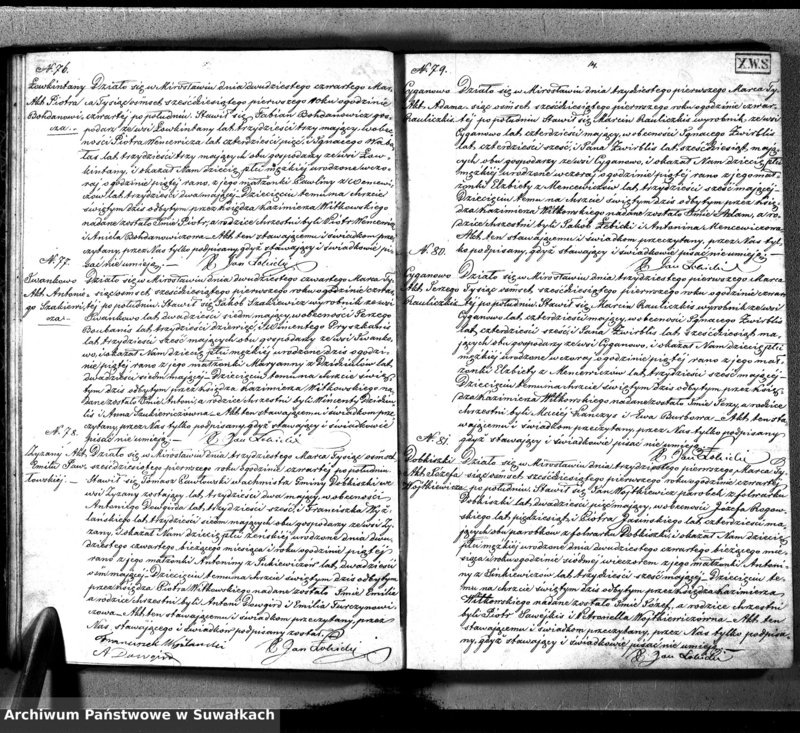 N. 76.
Łowkintany
Akt Piotra
Bohdanowi-
cza.
Działo się w Mirosławiu dnia dwudziestego czwartego Mar-
ca Tysiąc ośmset sześćdziesiątego pierwszego roku o godzinie
czwartej po południu. Stawił się Fabian Bohdanowicz gos-
podarz ze wsi Łowkintany lat trzydzieści trzy mający, w obec-
ności Piotra Wencewicza lat czterdzieści pięć, i Ignacego
lat trzydzieści trzy mających obu gospodarzy ze wsi Łow-
kintany, i okazał Nam dziecię płci męzkiej urodzone wczo-
raj o godzinie piątej rano, z jego małżonki Eweliny z Wencewi-
czów lat trzydzieści dwa mającej. Dziecięciu temu na chrzcie
świętym dziś odbytym przez księdza Kazimierza Witkowskiego
nadane zostało Imie Piotr, a rodzice chrzestni byli Piotr Wencewicz
i Aniela Bohdanowiczowna. Akt ten stawającemu i świadkom prze-
czytany, przez Nas tylko podpisany gdyż stawający i świadkowie pi-
sać nie umieją.
X. Jan
N. 77.
Iwankowo
Akt Antonie-
go Szukiewi-
cza.
Działo się w Mirosławiu dnia dwudziestego czwartego Marca Ty-
siąc ośmset sześćdziesiątego pierwszego roku o godzinie czwar-
tej po południu Stawił się Jakób Szukiewicz wyrobnik ze wsi
Iwankowo lat dwadzieścia siedm mający, w obecności Jerzego
lat trzydzieści dziewięć, i Wincentego
lat trzydzieści sześć mających obu gospodarzy ze wsi Iwanko-
wo, i okazał Nam dziecię płci męzkiej urodzone dziś o godzi-
nie piątej rano z jego małżonki Maryanny z lat
dwadzieścia sześć mającej. Dziecięciu temu na chrzcie świę-
tym dziś odbytym przez księdza Kazimierza Witkowskiego na-
dane zostało Imie Antoni, a rodzice chrzestni byli Wincenty
i Anna Szukiewiczówna. Akt ten stawającemu i świadkom prze-
czytany, przez Nas tylko podpisany gdyż stawający i świadkowie
pisać nie umieją.
X. Jan
N. 78.
Żyzany Akt
Emilii Paw-
łowskiej.
Działo się w Mirosławiu dnia trzydziestego Marca Tysiąc ośmset
sześćdziesiątego pierwszego roku o godzinie czwartej po południu
Stawił się Tomasz Pawłowski wachmistrz Gminy Dobkiszki ze
wsi Żyzany zostający lat trzydzieści dwa mający, w obecności
Antoniego Dowgirda lat trzydzieści sześć i Franciszka
lat trzydzieści siedm mających obu gospodarzy ze wsi Ży-
zany, i okazał Nam dziecię płci żeńskiej urodzone dnia dwu-
dziestego czwartego bieżącego miesiąca i roku o godzinie piątej
rano z jego małżonki Antoniny z Jutkiewiczów lat dwadzieścia
ośm mającej. Dziecięciu temu na chrzcie świętym dziś odbytym
przez księdza Piotra Witkowskiego nadane zostało Imie Emilia
a rodzice chrzestni byli Antoni Dowgird i Emilia
Akt ten stawającemu i świadkom przeczytany, przez
Nas, stawającego i świadków podpisany został.
Franciszek
A Dowgird
X. Jan
14.
X.W.S.
N. 79.
Cyganowo
Akt Adama
Rauliczkie
Działo się w Mirosławiu dnia trzydziestego pierwszego Marca Ty-
siąc ośmset sześćdziesiątego pierwszego roku o godzinie czwar-
tej po południu Stawił się Marcin Rauliczkis wyrobnik ze wsi
Cyganowo lat czterdzieści mający, w obecności Ignacego Zwirblis
lat czterdzieści sześć, i Jana Zwirblis lat sześćdziesiąt mają-
cych obu gospodarzy ze wsi Cyganowo, i okazał Nam dziecię płci
męzkiej urodzone wczoraj o godzinie piątej rano z jego mał-
żonki Elżbiety z Mencewiczów lat trzydzieści sześć mającej.
Dziecięciu temu na chrzcie świętym dziś odbytym przez księ-
dza Kazimierza Witkowskiego nadane zostało Imie Adam, a ro-
dzice chrzestni byli Jakób i Antonina Mencewiczowa
Akt ten stawającemu i świadkom przeczytany, przez Nas tyl-
ko podpisany, gdyż stawający i świadkowie pisać nie umieją.
X. Jan
N. 80.
Cyganowo
Akt Jerzego
Rauliczkie
Działo się w Mirosławiu dnia trzydziestego pierwszego Marca
Tysiąc ośmset sześćdziesiątego pierwszego roku o godzinie czwar-
tej po południu, Stawił się Marcin Rauliczkis wyrobnik ze wsi
Cyganowo lat czterdzieści mający, w obecności Ignacego Zwirblis
lat czterdzieści sześć, i Jana Zwirblis lat sześćdziesiąt ma-
jących obu gospodarzy ze wsi Cyganowo, i okazał Nam dziecię płci
męzkiej urodzone wczoraj o godzinie piątej rano z jego mał-
żonki Elżbiety z Mencewiczów lat trzydzieści sześć mającej.
Dziecięciu temu na chrzcie świętym dziś odbytym przez księ-
dza Kazimierza Witkowskiego nadane zostało Imie Jerzy, a rodzice
chrzestni byli Maciej i Ewa Akt ten sta-
wającemu i świadkom przeczytany, przez Nas tylko podpisany
gdyż stawający i świadkowie pisać nie umieją.
X. Jan
N. 81.
Dobkiszki
Akt Józefa
Wojtkiewicza
Działo się w Mirosławiu dnia trzydziestego pierwszego Marca Ty-
siąc ośmset sześćdziesiątego pierwszego roku o godzinie czwartej
po południu, Stawił się Jan Wojtkiewicz parobek z folwarku
Dobkiszki lat dwadzieścia pięć mający, w obecności Józefa Rogow-
skiego lat pięćdziesiąt, i Piotra Jasińskiego lat czterdzieści ma-
jących obu parobków z folwarku Dobkiszki, i okazał Nam dziecię
płci męzkiej urodzone dnia dwudziestego pierwszego bieżącego mie-
siąca i roku o godzinie siódmej wieczorem z jego małżonki Antoni-
ny z Sinkiewiczów lat trzydzieści sześć mającej. Dziecięciu te-
mu na chrzcie świętym dziś odbytym przez księdza Kazimierza
Witkowskiego nadane zostało Imie Józef, a rodzice chrzestni
byli Piotr i Petronella Wojtkiewiczówna. Akt ten
stawającemu i świadkom przeczytany, przez Nas tylko podpisa-
ny, gdyż stawający i świadkowie pisać nie umieją.
X. Jan
Archiwum Państwowe w Suwałkach